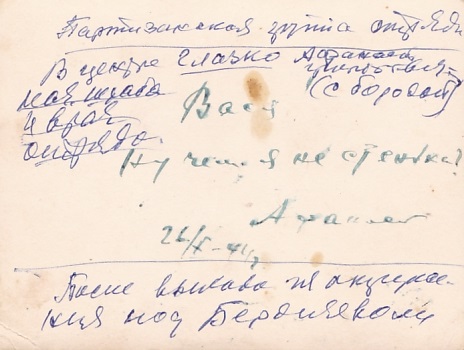 Партизанская группа отряда
В центре Глазко Афанасий
нач. штаба
(с бородой)
и врач
отряда.
Вася
Ну чем я не Стенька?
Афанас
26/X - 41 г
После выхода из окруже-
ния под Бердичевом